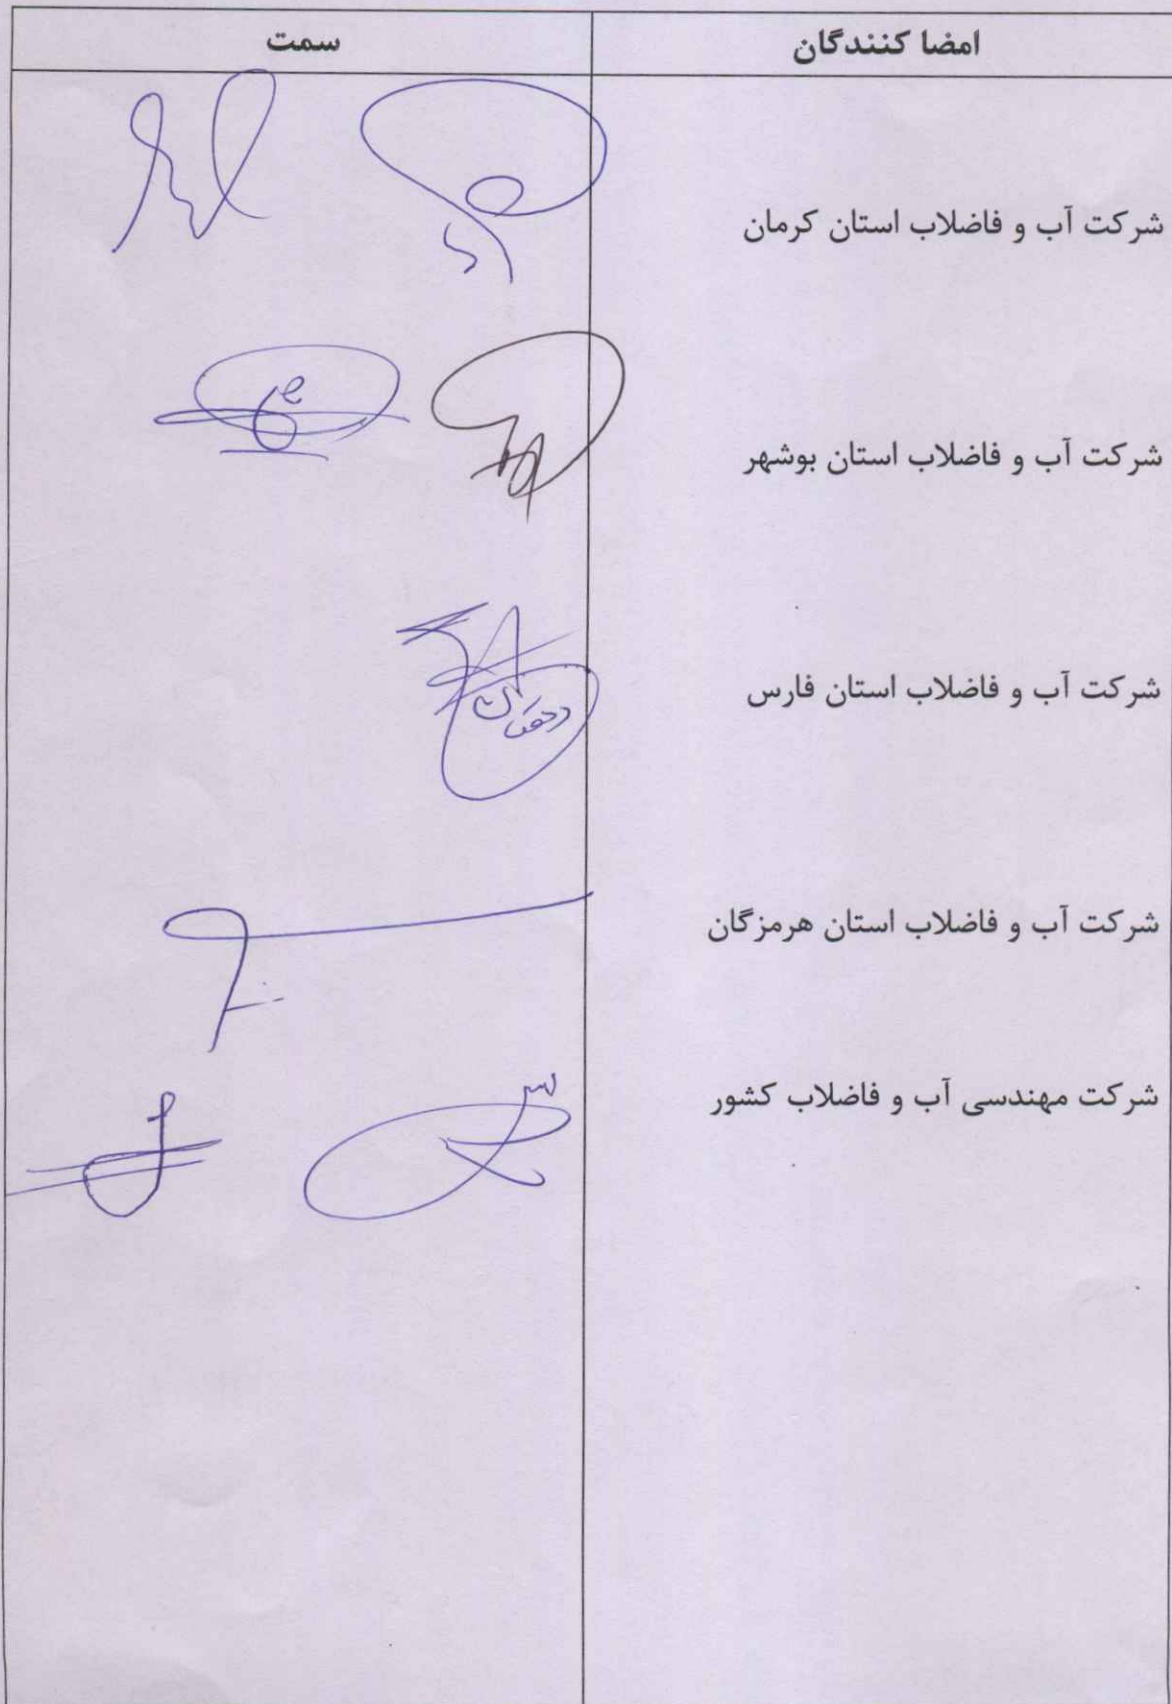 امضا کنندگان سمت
شرکت آب و فاضلاب استان کرمان
شرکت آب و فاضلاب استان بوشهر
شرکت آب و فاضلاب استان فارس
شرکت آب و فاضلاب استان هرمزگان
شرکت مهندسی آب و فاضلاب کشور